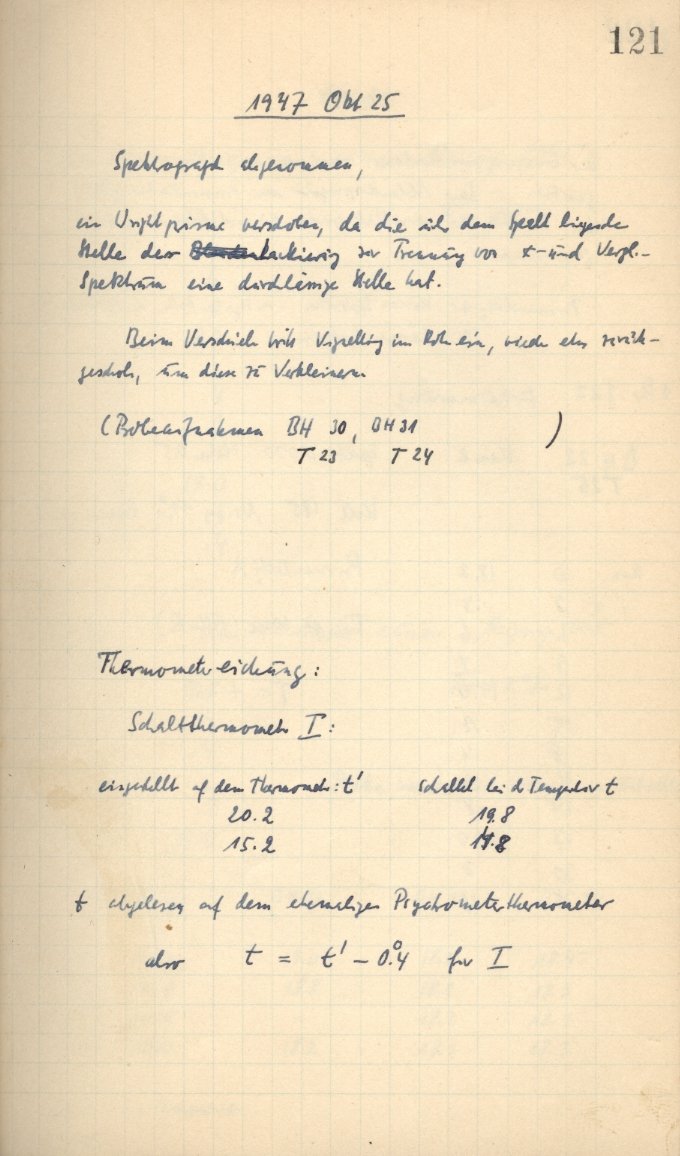 121
1947 Okt 25
Spektrograph abgenommen,
ein Vergl.prisma verschoben, da die über dem Spalt liegende
Stelle der lackierung zur Trennung von *-und Vergl.-
Spektrum eine durchlässige Stelle hat.
Beim Verschieben tritt Vignetting im Rot ein, wieder etw zurück-
geschob, um diese zu Verkleinern
(Probeaufnahmen BH 30, BH 31 )
T 23 T 24
Thermometereichung:
Schaltthermometer I:
eingestellt auf dem Thermometer: t' schaltet bei der Temperatur t
20.2 19.8
15.2 14.8
t abgelesen auf dem ehemaligen Psychrometerthermometer
also t = t' – 0°.4 für I